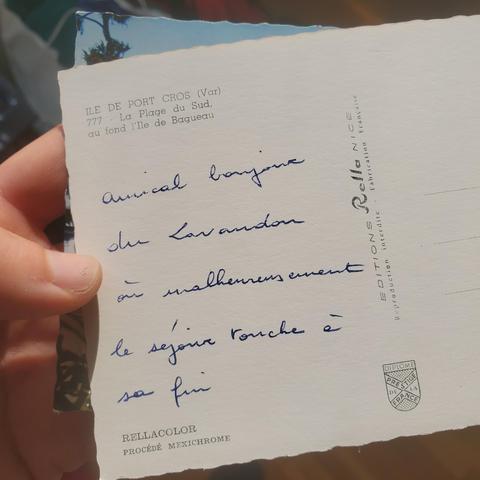 ILE DE PORT CROS (Var)
777 - La Plage du Sud,
au fond l'Ile de Bagueau
amical bonjour
du Lavandou
où malheureusement
le séjour touche à
sa fin
RELLACOLOR
PROCÉDÉ MEXICHROME
EDITIONS Rella NICE
Reproduction interdite - Fabrication Française
DIPLOME
PRESTIGE
DE LA
FRANCE